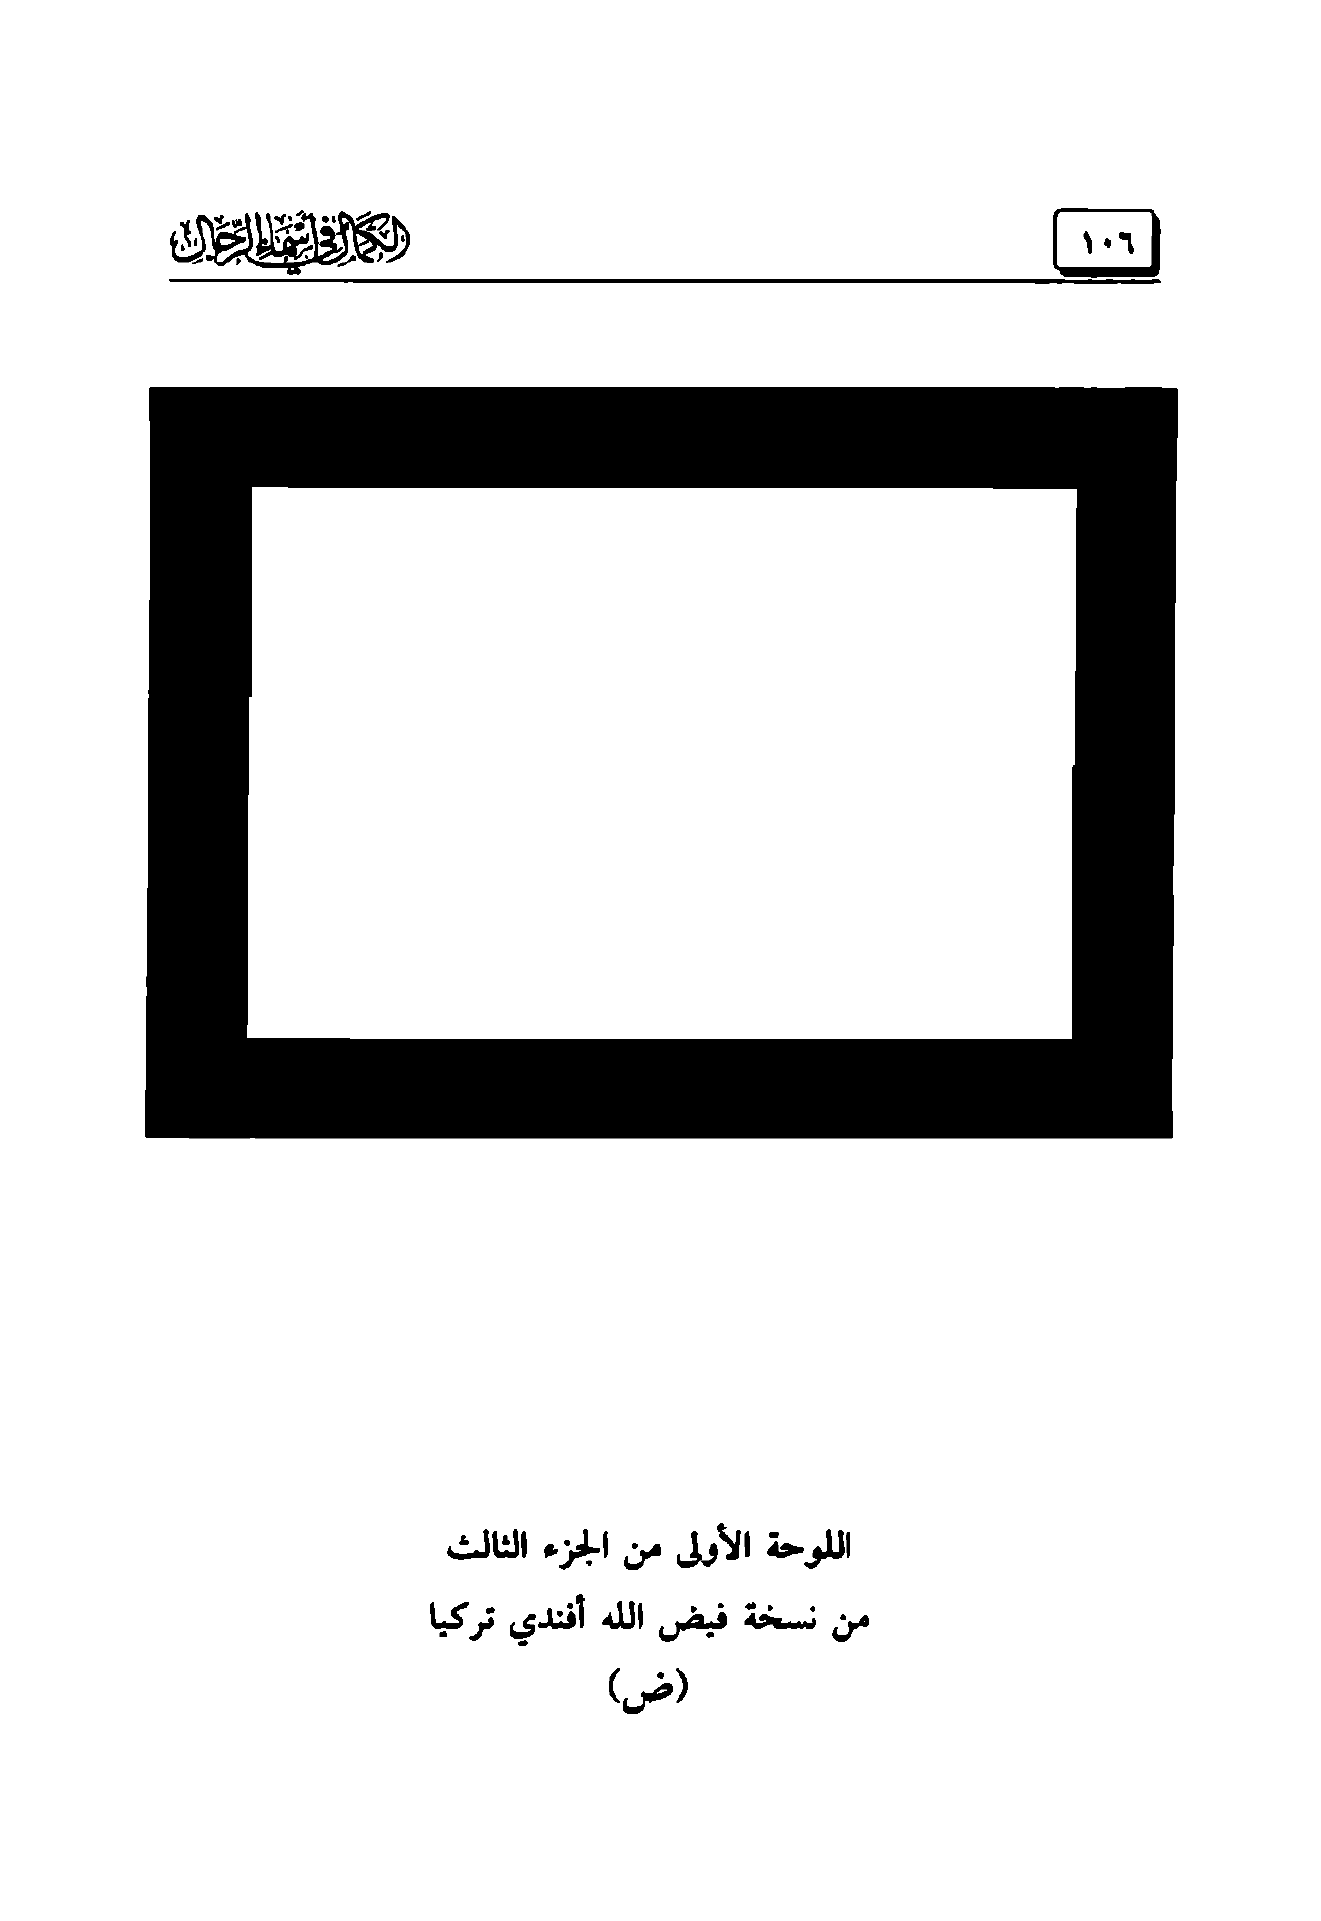 ١٠٦
الكمال في أسماء الرجال
اللوحة الأولى من الجزء الثالث
من نسخة فيض الله أفندي تركيا
(ض)